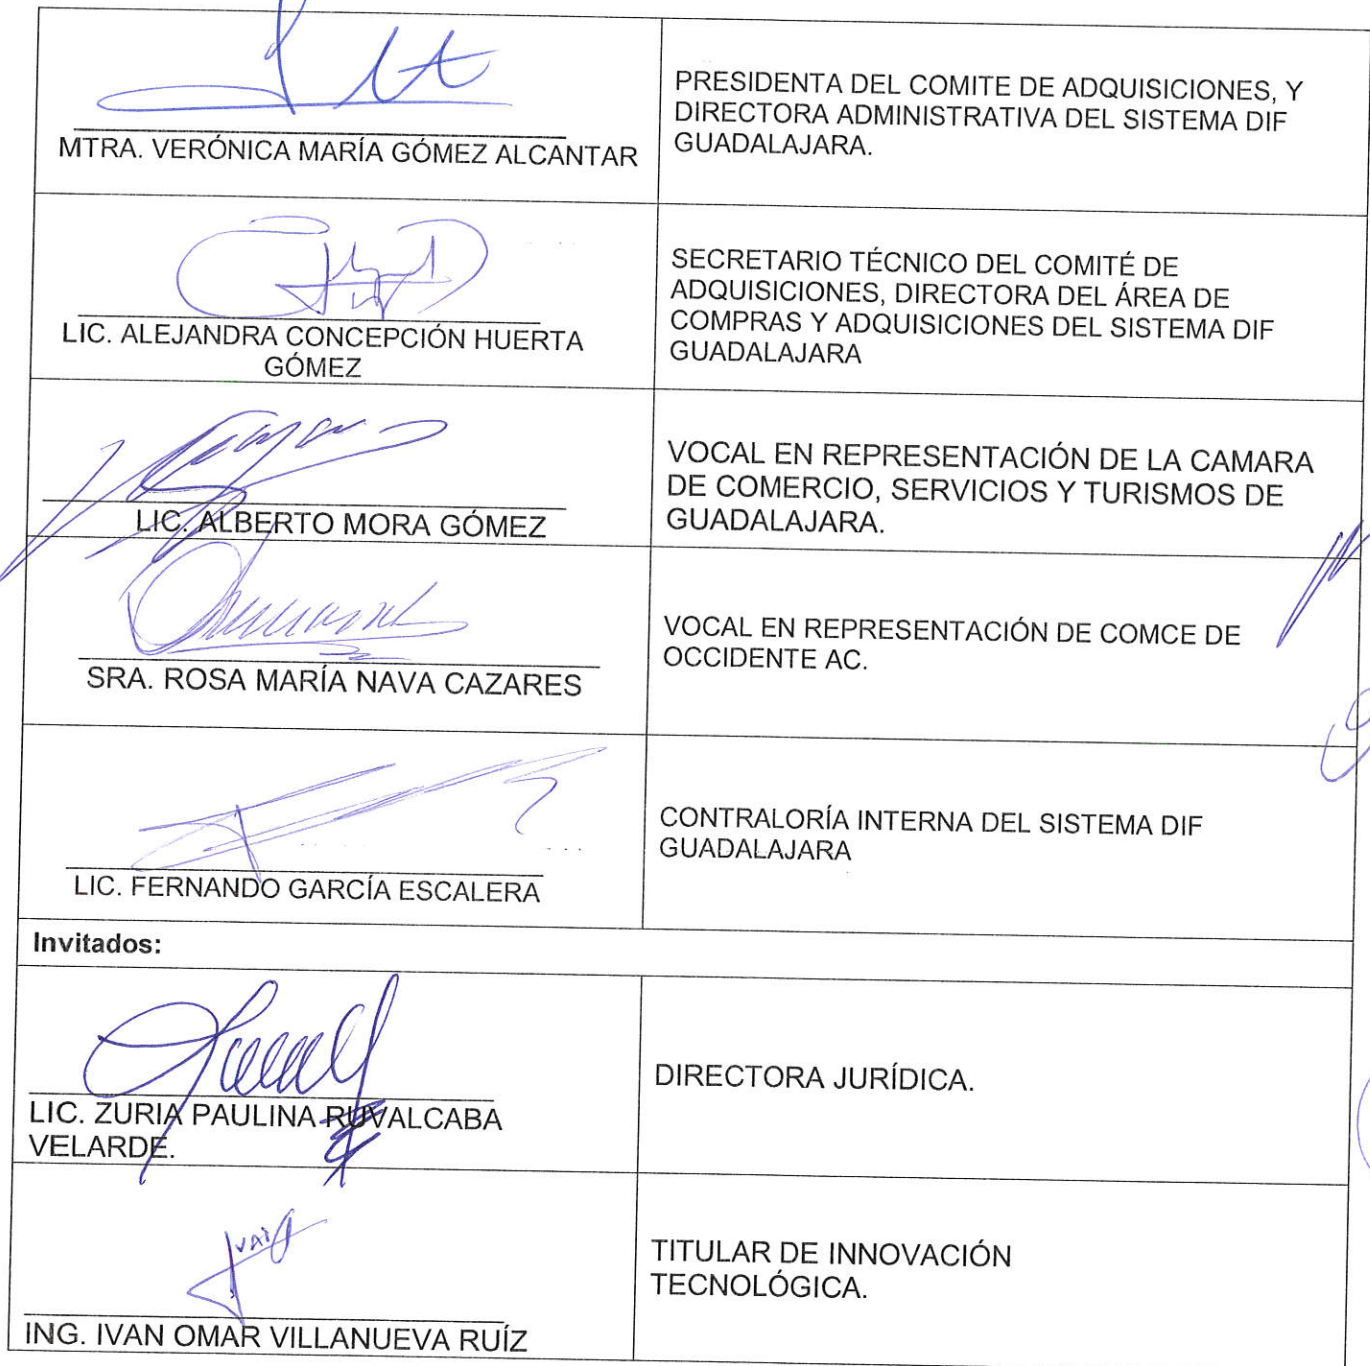 MTRA. VERÓNICA MARÍA GÓMEZ ALCANTAR
PRESIDENTA DEL COMITE DE ADQUISICIONES, Y
DIRECTORA ADMINISTRATIVA DEL SISTEMA DIF
GUADALAJARA.
LIC. ALEJANDRA CONCEPCIÓN HUERTA
GÓMEZ
SECRETARIO TÉCNICO DEL COMITÉ DE
ADQUISICIONES, DIRECTORA DEL ÁREA DE
COMPRAS Y ADQUISICIONES DEL SISTEMA DIF
GUADALAJARA
LIC. ALBERTO MORA GÓMEZ
VOCAL EN REPRESENTACIÓN DE LA CAMARA
DE COMERCIO, SERVICIOS Y TURISMOS DE
GUADALAJARA.
SRA. ROSA MARÍA NAVA CAZARES
VOCAL EN REPRESENTACIÓN DE COMCE DE
OCCIDENTE AC.
LIC. FERNANDO GARCÍA ESCALERA
CONTRALORÍA INTERNA DEL SISTEMA DIF
GUADALAJARA
Invitados:
LIC. ZURIA PAULINA RUVALCABA
VELARDE.
DIRECTORA JURÍDICA.
ING. IVAN OMAR VILLANUEVA RUÍZ
TITULAR DE INNOVACIÓN
TECNOLÓGICA.